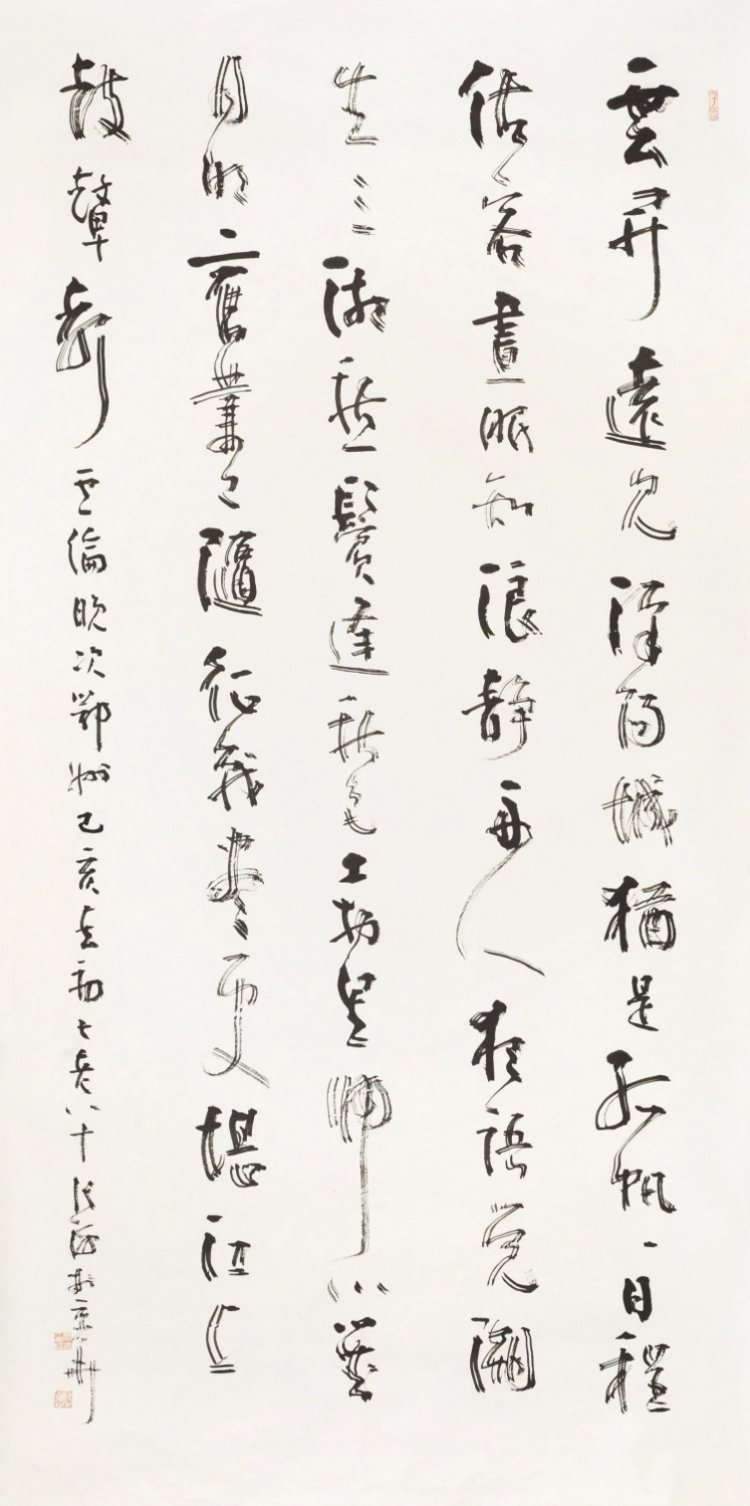 雲開遠見漢陽城猶是孤帆一日程
估客晝眠知浪静舟人夜語覺潮
生三湘愁鬢逢秋色萬里歸心對
月明舊業已隨征戰盡更堪江上
鼓鼙聲 盧倫晚次鄂州己亥初七八十